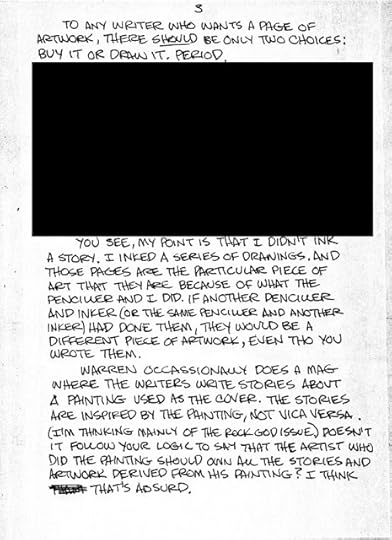 3
TO ANY WRITER WHO WANTS A PAGE OF
ARTWORK, THERE SHOULD BE ONLY TWO CHOICES:
BUY IT OR DRAW IT. PERIOD.
YOU SEE, MY POINT IS THAT I DIDN'T INK
A STORY. I INKED A SERIES OF DRAWINGS. AND
THOSE PAGES ARE THE PARTICULAR PIECE OF
ART THAT THEY ARE BECAUSE OF WHAT THE
PENCILLER AND I DID. IF ANOTHER PENCILLER
AND INKER (OR THE SAME PENCILLER AND ANOTHER
INKER) HAD DONE THEM, THEY WOULD BE A
DIFFERENT PIECE OF ARTWORK, EVEN THO YOU
WROTE THEM.
WARREN OCCASSIONALLY DOES A MAG
WHERE THE WRITERS WRITE STORIES ABOUT
A PAINTING USED AS THE COVER. THE STORIES
ARE INSPIRED BY THE PAINTING, NOT VICA VERSA.
(I'M THINKING MAINLY OF THE ROCK GOD ISSUE.) DOESN'T
IT FOLLOW YOUR LOGIC TO SAY THAT THE ARTIST WHO
DID THE PAINTING SHOULD OWN ALL THE STORIES AND
ARTWORK DERIVED FROM HIS PAINTING? I THINK
THAT'S ABSURD.